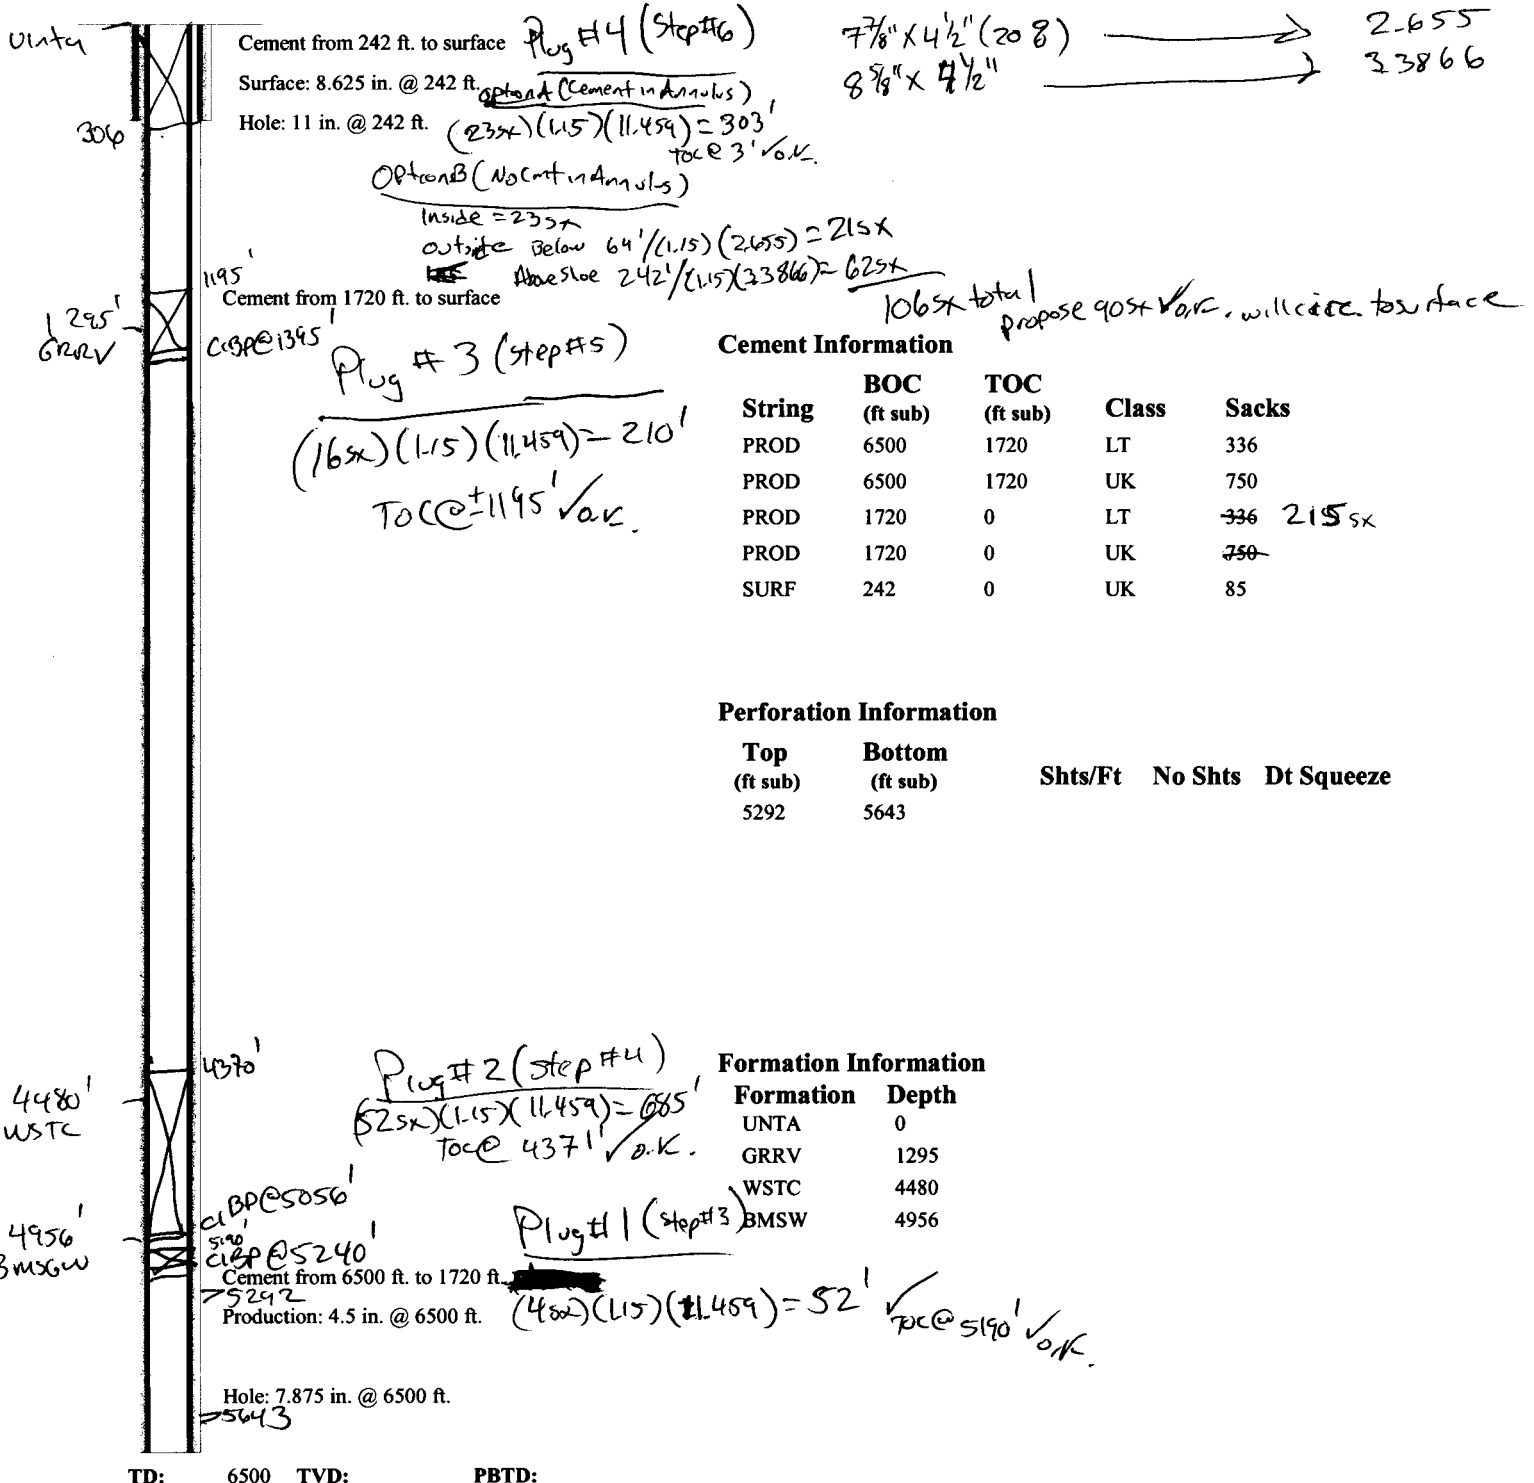 Uinta
Cement from 242 ft. to surface Plug #4 (Step #6)
7 7/8" X 4 1/2" (20%) → 2.655
Surface: 8.625 in. @ 242 ft.
8 5/8" X 4 1/2" → 3.3866
Option A (Cement in Annulus)
Hole: 11 in. @ 242 ft. (23sx)(1.15)(11.459) = 303'
306
TOC @ 3' ✓ O.K.
Option B (No Cmt in Annulus)
Inside = 23sx
Outside Below 64'/(1.15)(2.655) = 21sx
Above Shoe 242'/(1.15)(3.3866) = 62sx
106sx total
propose 90sx ✓ O.K. will circ to surface
1195'
Cement from 1720 ft. to surface
1295'
GRRV
CIBP @ 1395'
Plug #3 (Step #5)
(16sx)(1.15)(11.459) = 210'
TOC @ ±1195' ✓ O.K.
Cement Information
String BOC (ft sub) TOC (ft sub) Class Sacks
PROD 6500 1720 LT 336
PROD 6500 1720 UK 750
PROD 1720 0 LT 336 215 sx
PROD 1720 0 UK 750
SURF 242 0 UK 85
Perforation Information
Top (ft sub) Bottom (ft sub) Shts/Ft No Shts Dt Squeeze
5292 5643
4370'
4480'
WSTC
Plug #2 (Step #4)
(52sx)(1.15)(11.459) = 685'
TOC @ 4371' ✓ O.K.
Formation Information
Formation Depth
UNTA 0
GRRV 1295
WSTC 4480
BMSW 4956
CIBP @ 5056'
4956'
BMSGW
5190'
CIBP @ 5240'
Plug #1 (Step #3)
Cement from 6500 ft. to 1720 ft.
5292
Production: 4.5 in. @ 6500 ft. (4sx)(1.15)(11.459) = 52' ✓
TOC @ 5190' ✓ O.K.
Hole: 7.875 in. @ 6500 ft.
5643
TD: 6500 TVD: PBTD: